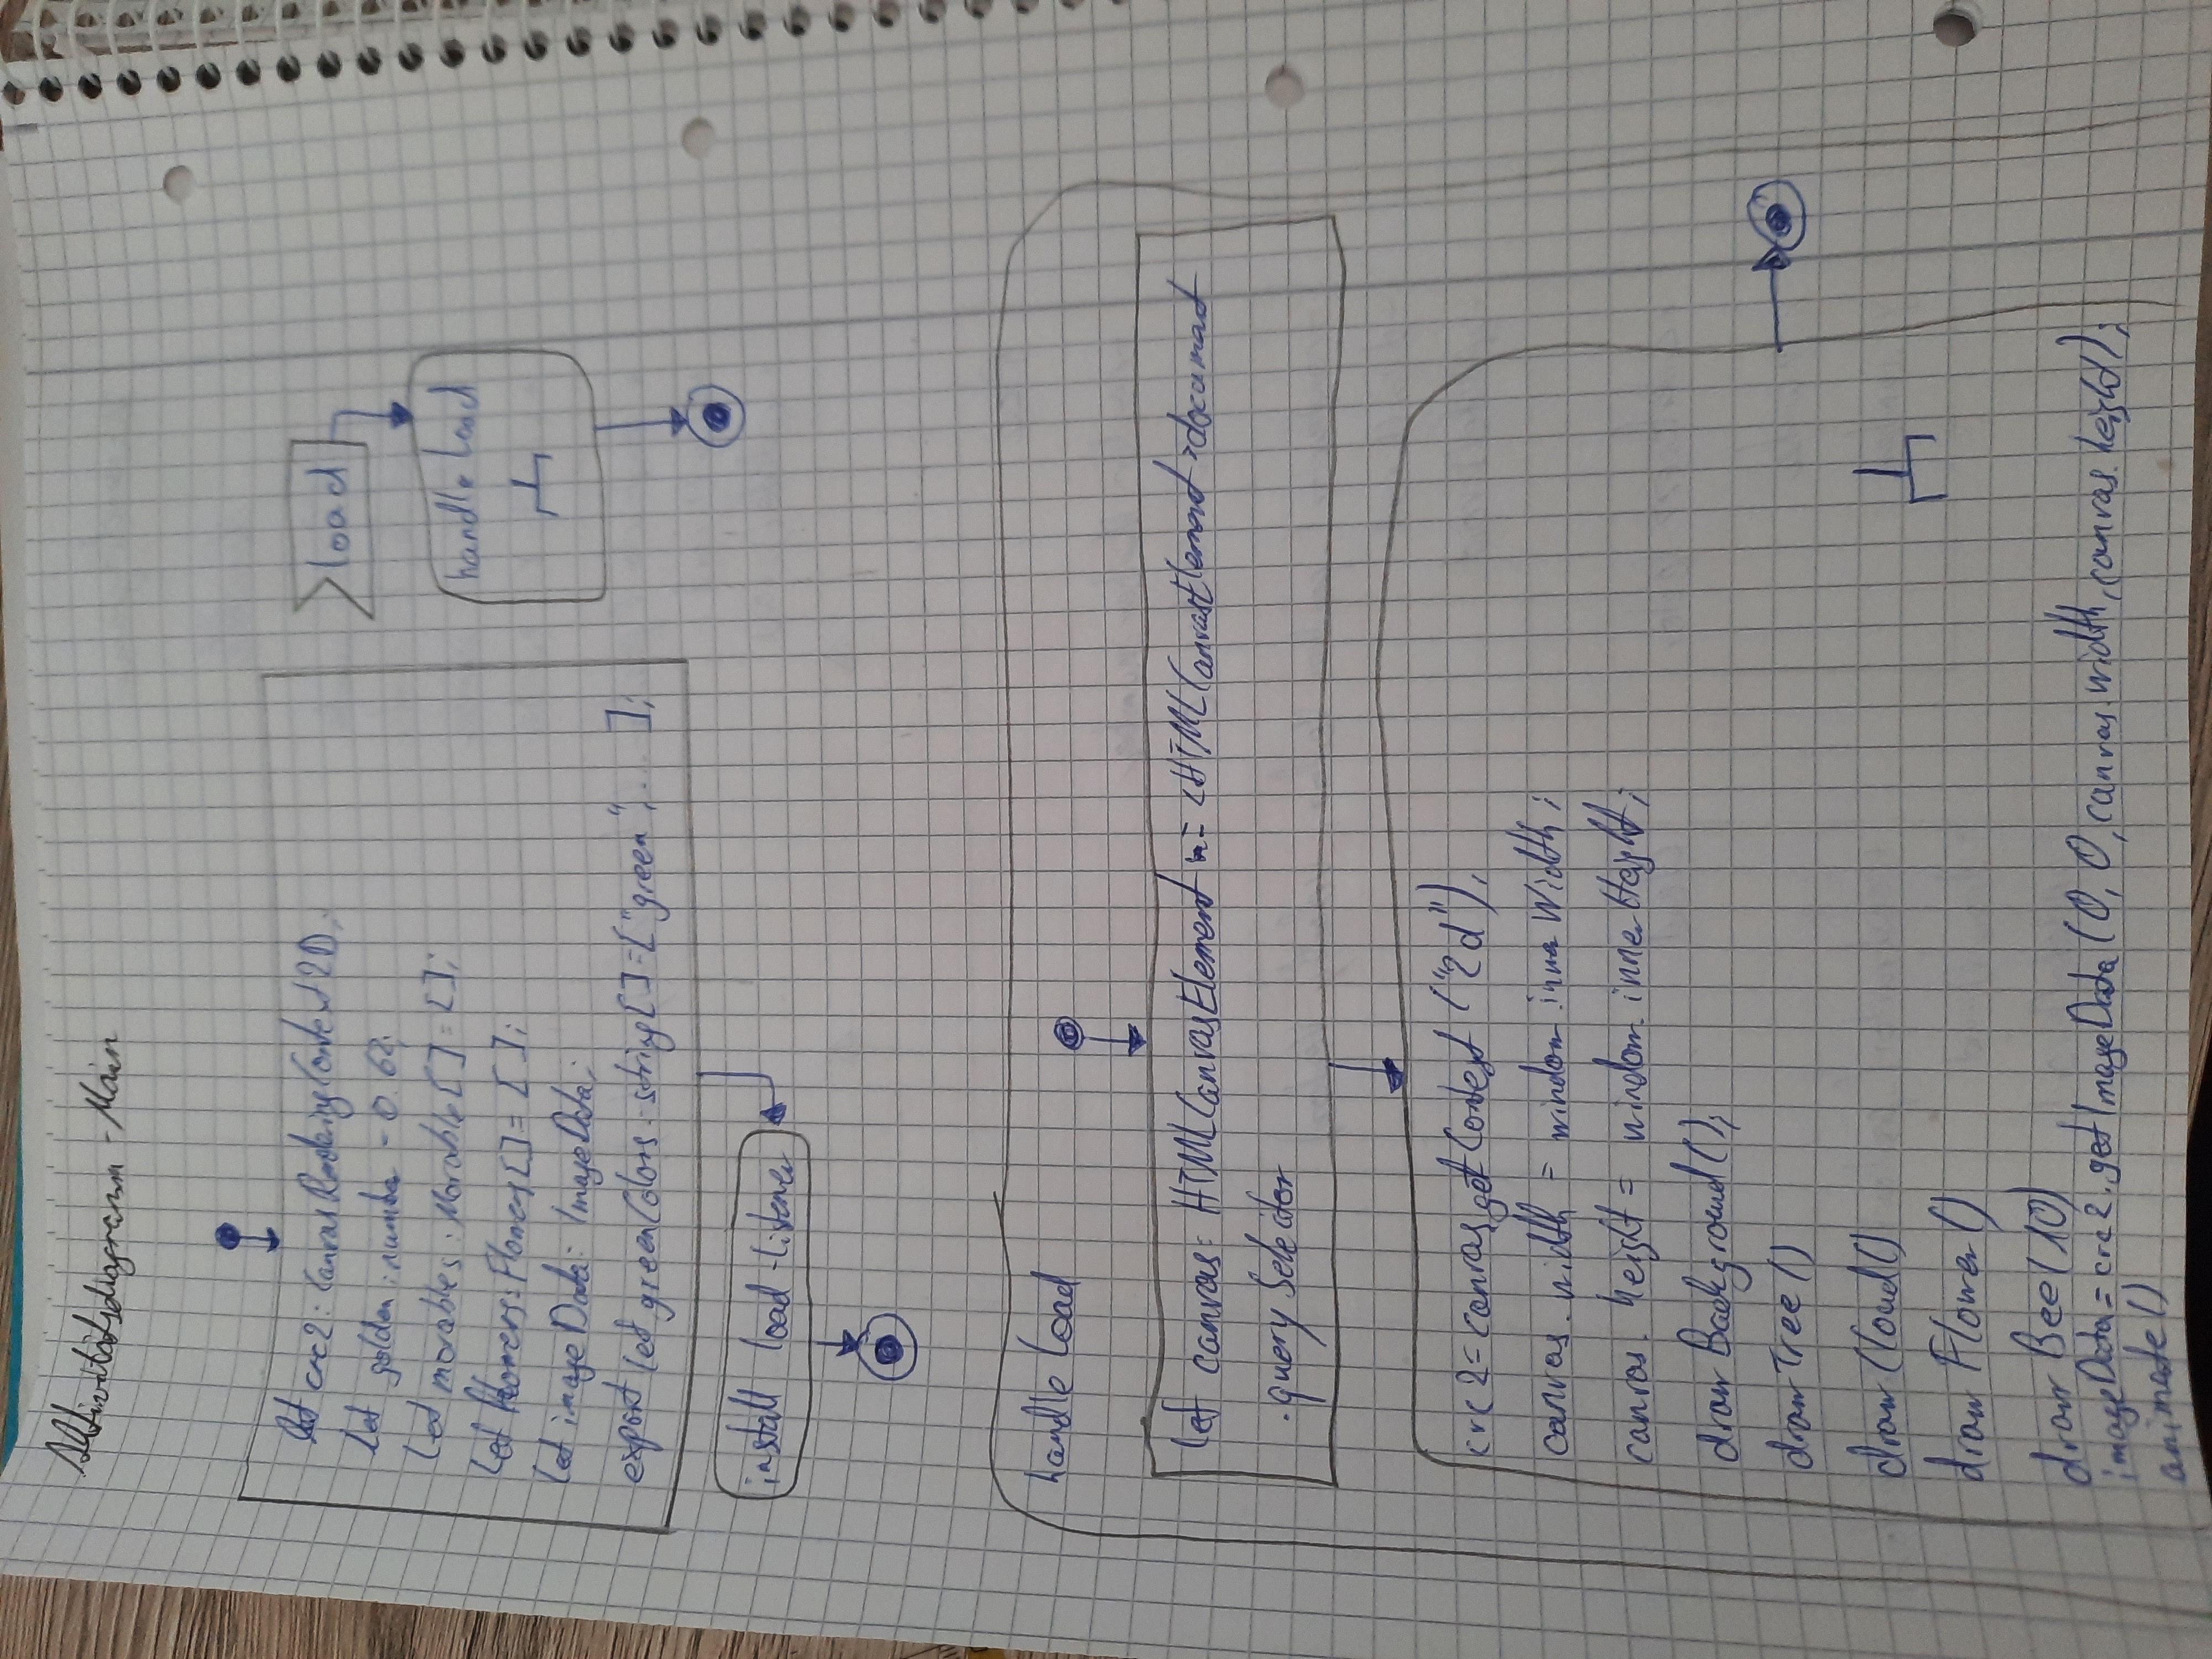 Aktivitätsdiagramm - Main
let crc2: CanvasRenderingContext2D;
let golden: number = 0.62;
let moveables: Moveable[] = [];
let flowers: Flowers[] = [];
let imageData: ImageData;
export let greenColors: string[] = ["green", ... ];
install load-listener
load
handle load
handle load
let canvas: HTMLCanvasElement = <HTMLCanvasElement>document
.querySelector
crc2 = canvas.getContext ("2d");
canvas.width = window.innerWidth;
canvas.height = window.innerHeight;
drawBackground();
drawTree()
drawCloud()
drawFlower()
drawBee(10)
imageData = crc2.getImageData (0, 0, canvas.width, canvas.height);
animate()